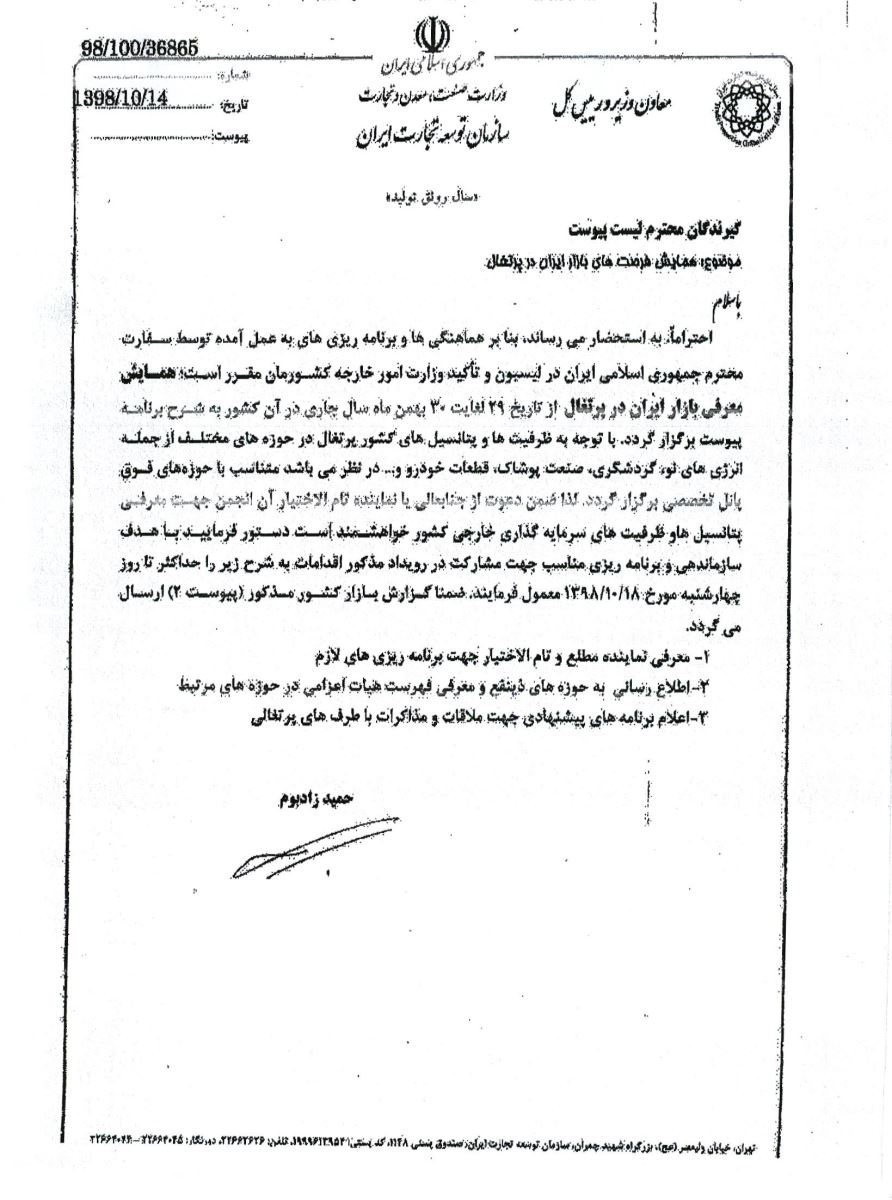 98/100/36865
جمهوری اسلامی ایران
شماره:
وزارت صنعت، معدن و تجارت
معاون وزیر و رییس کل
1398/10/14
تاریخ:
سازمان توسعه تجارت ایران
پیوست:
«سال رونق تولید»
گیرندگان محترم لیست پیوست
موضوع: همایش فرصت های بازار ایران در پرتغال
باسلام
احتراماً، به استحضار می رساند، بنا بر هماهنگی ها و برنامه ریزی های به عمل آمده توسط سفارت
محترم جمهوری اسلامی ایران در لیسبون و تأکید وزارت امور خارجه کشورمان مقرر است، همایش
معرفی بازار ایران در پرتغال از تاریخ ۲۹ لغایت ۳۰ بهمن ماه سال جاری در آن کشور به شرح برنامه
پیوست برگزار گردد. با توجه به ظرفیت ها و پتانسیل های کشور پرتغال در حوزه های مختلف از جمله
انرژی های نو، گردشگری، صنعت پوشاک، قطعات خودرو و... در نظر می باشد متناسب با حوزه‌های فوق
پانل تخصصی برگزار گردد. لذا ضمن دعوت از جنابعالی یا نماینده تام الاختیار آن انجمن جهت معرفی
پتانسیل ها و ظرفیت های سرمایه گذاری خارجی کشور خواهشمند است دستور فرمایید با هدف
سازماندهی و برنامه ریزی مناسب جهت مشارکت در رویداد مذکور اقدامات به شرح زیر را حداکثر تا روز
چهارشنبه مورخ ۱۳۹۸/۱۰/۱۸ معمول فرمایند. ضمنا گزارش بازار کشور مذکور (پیوست ۲) ارسال
می گردد.
۱- معرفی نماینده مطلع و تام الاختیار جهت برنامه ریزی های لازم
۲- اطلاع رسانی به حوزه های ذینفع و معرفی فهرست هیات اعزامی در حوزه های مرتبط
۳- اعلام برنامه های پیشنهادی جهت ملاقات و مذاکرات با طرف های پرتغالی
حمید زادبوم
تهران، خیابان ولیعصر (عج)، بزرگراه شهید چمران، سازمان توسعه تجارت ایران، صندوق پستی ۱۱۴۸، کد پستی: ۱۹۹۹۶۱۳۹۵۴، تلفن: ۲۲۶۶۲۶۲۶، دورنگار: ۲۲۶۶۴۰۴۵ –